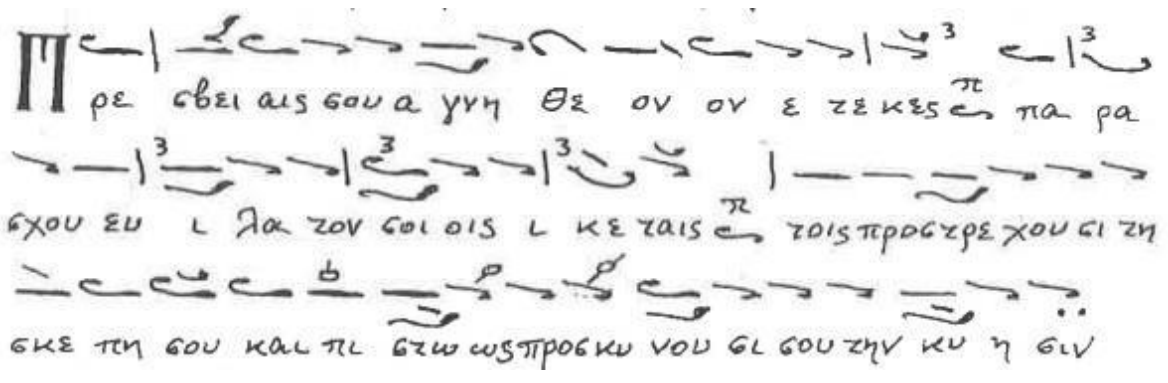 Πρε σβει αις σου α γνη Θε ον ον ε τε κες π πα ρα
σχου ευ ι λα τον σοι οις ι κε ταις π τοις προστρε χου σι τη
σκε πη σου και πι στω ως προσκυ νου σι σου την κυ η σιν